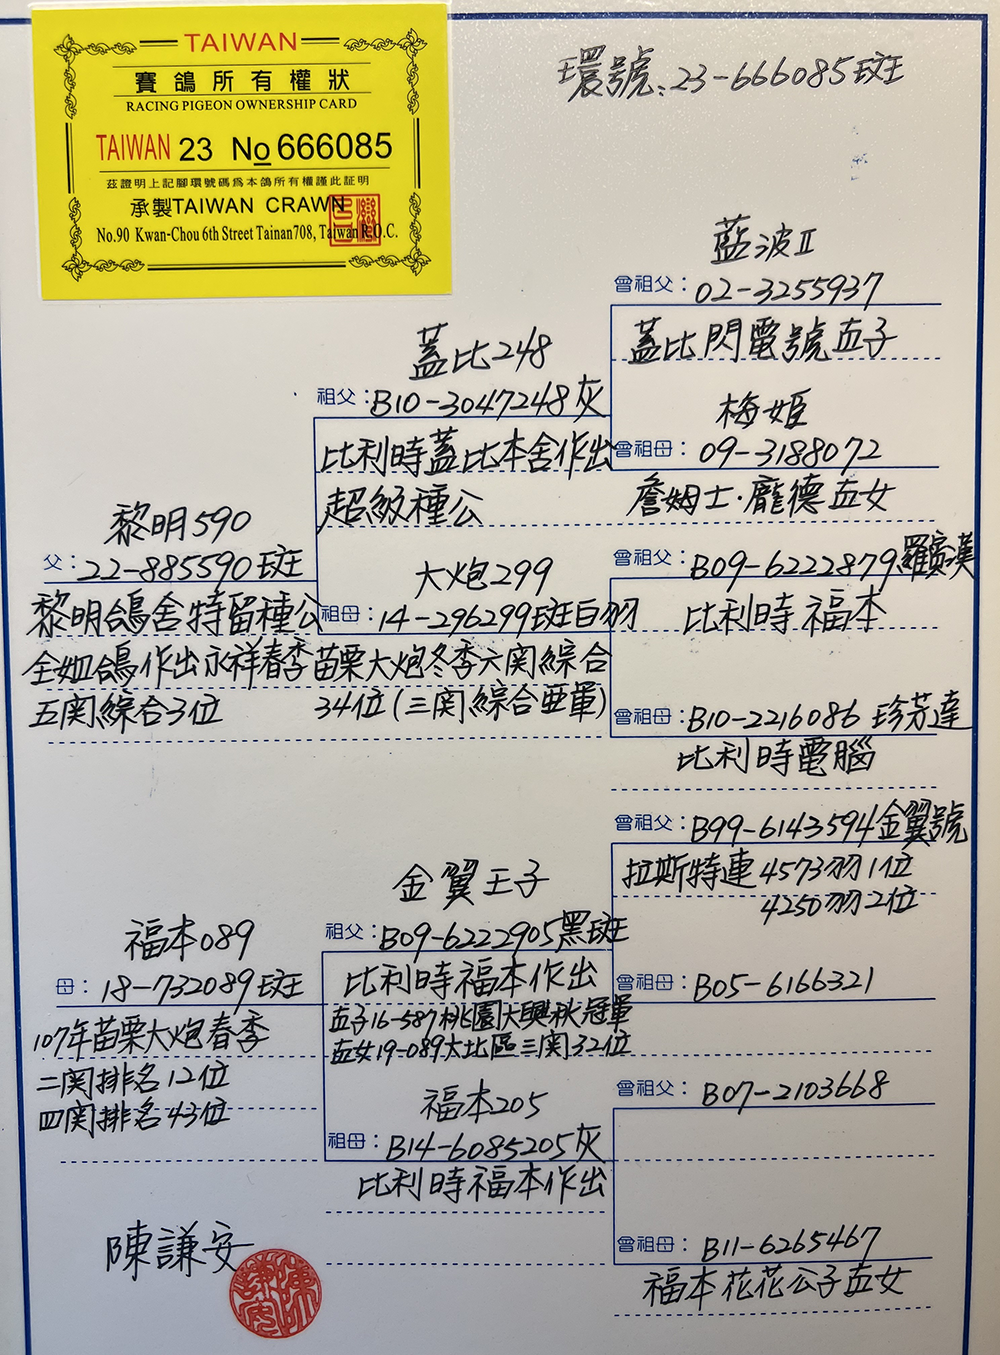 TAIWAN
賽鴿所有權狀
RACING PIGEON OWNERSHIP CARD
TAIWAN 23 No 666085
茲證明上記腳環號碼為本鴿所有權謹此証明
承製TAIWAN CRAWN
No.90 Kwan-Chou 6th Street Tainan708, Taiwan R.O.C.
環號:23-666085斑
黎明590
父:22-885590斑
黎明鴿舍特留種公
全姐鴿作出永祥春季
五関綜合3位
蓋比248
祖父:B10-3047248灰
比利時蓋比本舍作出
超級種公
大炮299
祖母:14-296299斑白羽
苗栗大炮冬季六関綜合
34位(三関綜合亞軍)
藍波II
曾祖父:02-3255937
蓋比閃電號直子
梅姬
曾祖母:09-3188072
詹姆士·龐德直女
曾祖父:B09-6222879羅賓漢
比利時福本
曾祖母:B10-2216086 珍芳達
比利時電腦
福本089
母:18-732089斑
107年苗栗大炮春季
二関排名12位
四関排名43位
金翼王子
祖父:B09-6222905黑斑
比利時福本作出
直子16-587桃園大興秋冠軍
直女19-089大北區三関32位
福本205
祖母:B14-6085205灰
比利時福本作出
曾祖父:B99-6143594金翼號
拉斯特連4573羽1位
4250羽2位
曾祖母:B05-6166321
曾祖父:B07-2103668
曾祖母:B11-6265467
福本花花公子直女
陳謙安